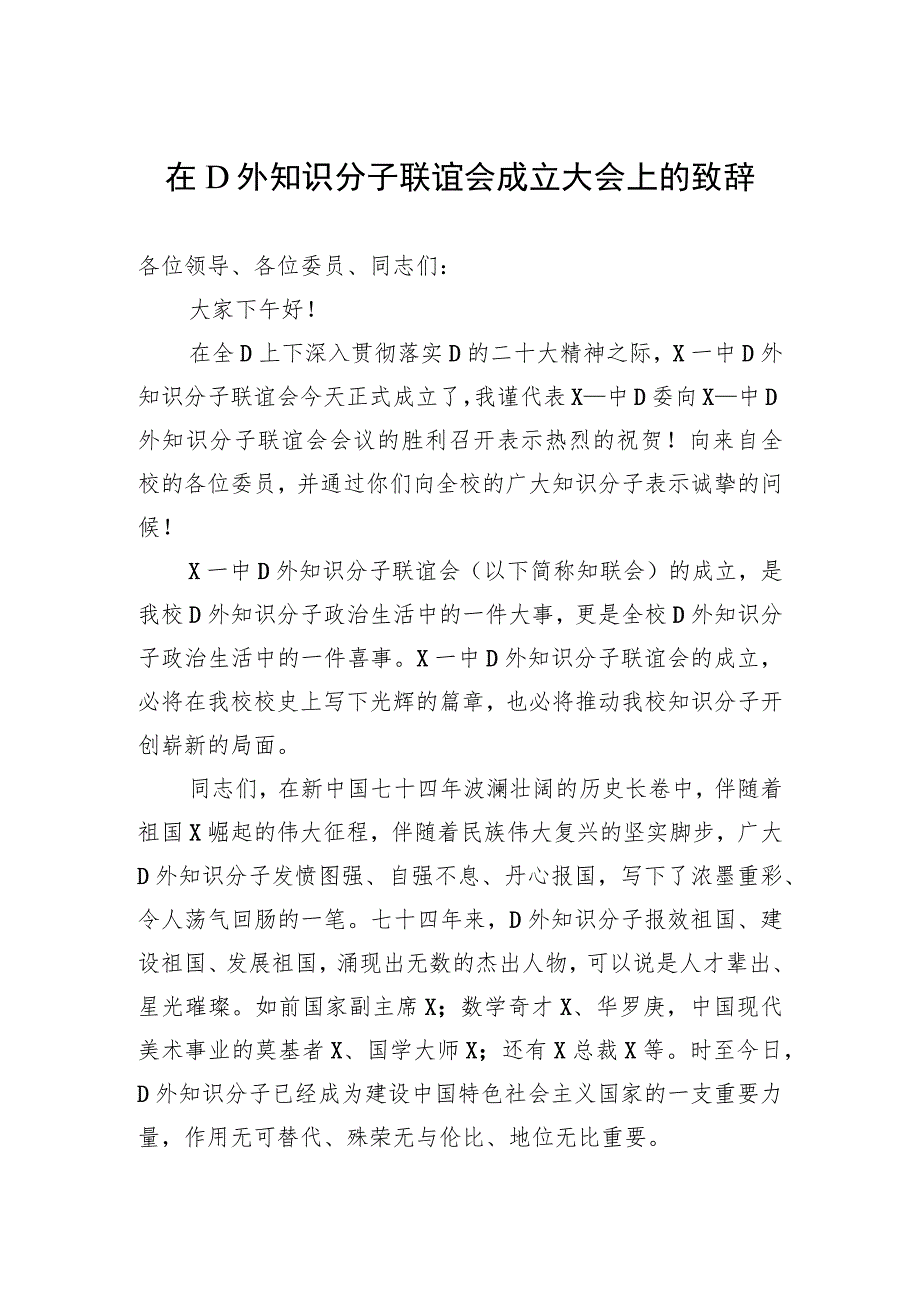 在D外知识分子联谊会成立大会上的致辞
各位领导、各位委员、同志们：
大家下午好！
在全D上下深入贯彻落实D的二十大精神之际，X一中D外
知识分子联谊会今天正式成立了，我谨代表X—中D委向X—中D
外知识分子联谊会会议的胜利召开表示热烈的祝贺！向来自全
校的各位委员，并通过你们向全校的广大知识分子表示诚挚的问
候！
X一中D外知识分子联谊会（以下简称知联会）的成立，是
我校D外知识分子政治生活中的一件大事，更是全校D外知识分
子政治生活中的一件喜事。X一中D外知识分子联谊会的成立，
必将在我校校史上写下光辉的篇章，也必将推动我校知识分子开
创崭新的局面。
同志们，在新中国七十四年波澜壮阔的历史长卷中，伴随着
祖国X崛起的伟大征程，伴随着民族伟大复兴的坚实脚步，广大
D外知识分子发愤图强、自强不息、丹心报国，写下了浓墨重彩、
令人荡气回肠的一笔。七十四年来，D外知识分子报效祖国、建
设祖国、发展祖国，涌现出无数的杰出人物，可以说是人才辈出、
星光璀璨。如前国家副主席X；数学奇才X、华罗庚，中国现代
美术事业的莫基者X、国学大师X；还有X总裁X等。时至今日，
D外知识分子已经成为建设中国特色社会主义国家的一支重要力
量，作用无可替代、殊荣无与伦比、地位无比重要。